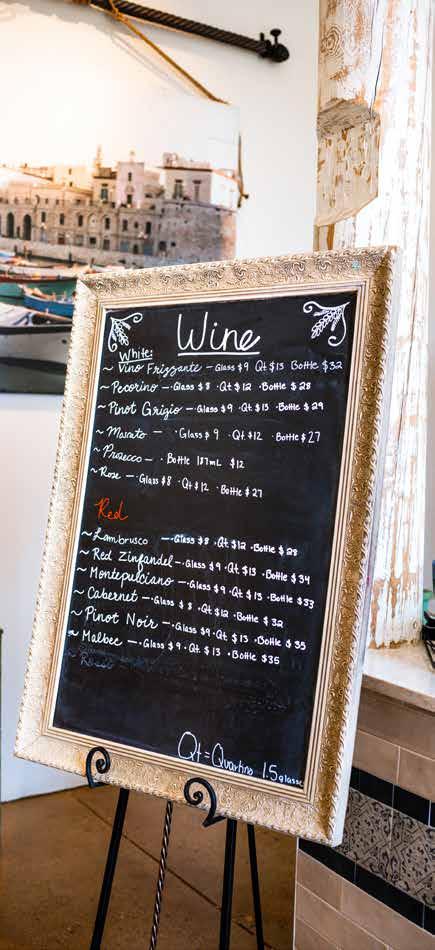 Wine
White:
~ Vino Frizzante - Glass $9 Qt $13 Bottle $32
~ Pecorino - Glass $8 · Qt $12 · Bottle $28
~ Pinot Grigio - Glass $9 · Qt $13 · Bottle $29
~ Moscato - · Glass $9 · Qt $12 · Bottle $27
~ Prosecco - · Bottle 187mL $12
~ Rose - Glass $8 · Qt $12 · Bottle $27
Red
~ Lambrusco - Glass $8 · Qt $12 · Bottle $28
~ Red Zinfandel - Glass $9 · Qt $13 · Bottle $34
~ Montepulciano - Glass $9 · Qt $13 · Bottle $33
~ Cabernet - Glass $8 · Qt $12 · Bottle $32
~ Pinot Noir - Glass $9 · Qt $13 · Bottle $35
~ Malbec - Glass $9 · Qt $13 · Bottle $35
Qt = Quartino 1.5 glass